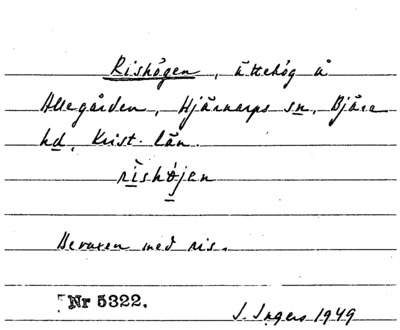 Rishögen, ättehög å
Allegården, Hjärnarps sn, Bjäre
hd, Krist. län.
rishøjen
Bevuxen med ris.
Nr 5322.
I. Ingers 1949